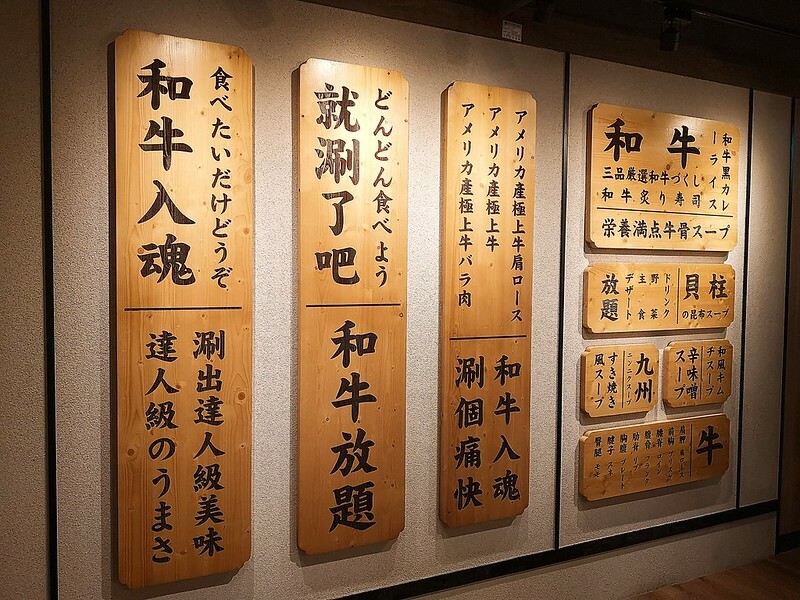 食べたいだけどうぞ
和牛入魂
涮出達人級美味
達人級のうまさ
どんどん食べよう
就涮了吧
和牛放題
アメリカ産極上牛肩ロース
アメリカ産極上牛
アメリカ産極上牛バラ肉
和牛入魂
涮個痛快
和牛黒カレ
ーライス
和牛
三品厳選和牛づくし
和牛炙り寿司
栄養満点牛骨スープ
貝柱
の昆布スープ
ドリンク
野菜
主食
デザート
放題
和風キム
チスープ
辛味噌
スープ
九州
すき焼き
風スープ
牛